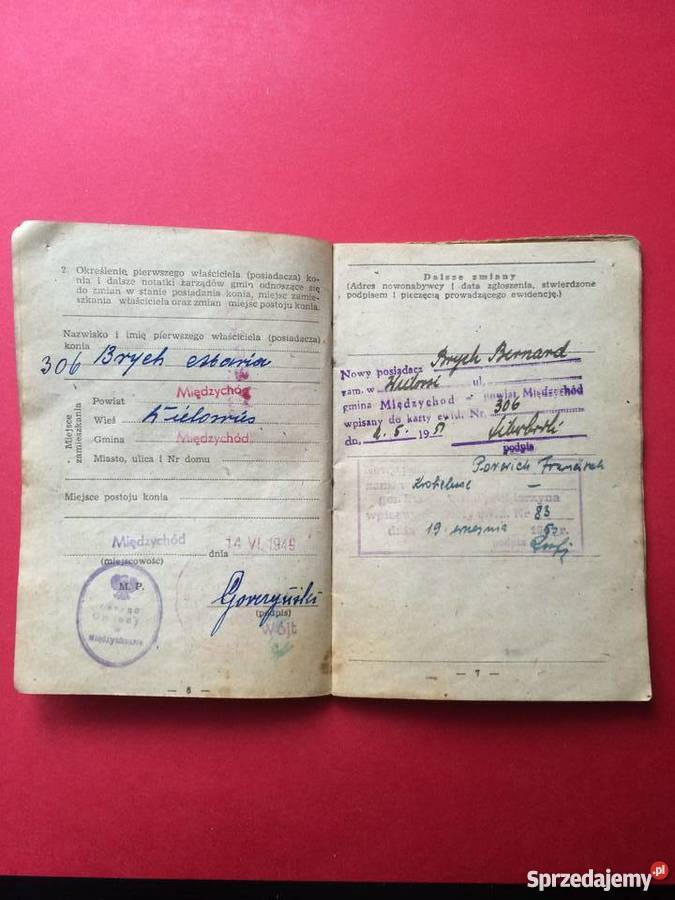 2. Określenię pierwszego właściciela (posiadacza) ko-
nia i dalsze notatki zarządów gmin odnoszące się
do zmian w stanie posiadania konia, miejsc zamie-
szkania właściciela oraz zmian miejsc postoju konia.
Nazwisko i imię pierwszego właściciela (posiadacza)
konia
306 Brych Maria
Miejsce zamieszkania
Powiat Międzychód
Wieś Wielowieś
Gmina Międzychód
Miasto, ulica i Nr domu
Miejsce postoju konia
Międzychód dnia 14 VI. 1949
(miejscowość)
M. P. Gorzyński
(podpis)
Wójt
— 6 —
Dalsze zmiany
(Adres nowonabywcy i data zgłoszenia, stwierdzone
podpisem i pieczęcią prowadzącego ewidencję.)
Nowy posiadacz Brych Bernard
zam. w ul.
gmina Międzychód — powiat Międzychód
wpisany do karty ewid. Nr. 306
dn. 2. 5. 1951
podpis
Franciszek
Nr 83
dnia 19 września
podpis
— 7 —
Sprzedajemy.pl